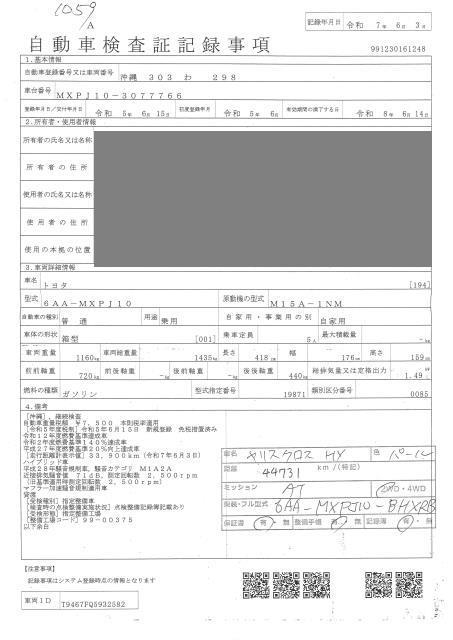 1059
/A
記録年月日 令和 7年 6月 3日
自動車検査証記録事項
991230161248
1.基本情報
自動車登録番号又は車両番号 沖縄 303 わ 298
車台番号 MXPJ10-3077766
登録年月日/交付年月日 令和 5年 6月 15日 初度登録年月 令和 5年 6月 有効期間の満了する日 令和 8年 6月 14日
2.所有者・使用者情報
所有者の氏名又は名称
所有者の住所
使用者の氏名又は名称
使用者の住所
使用の本拠の位置
3.車両詳細情報
車名 トヨタ [194]
型式 6AA-MXPJ10 原動機の型式 M15A-1NM
自動車の種別 普通 用途 乗用 自家用・事業用の別 自家用
車体の形状 箱型 [001] 乗車定員 5人 最大積載量 -kg
車両重量 1160kg 車両総重量 1435kg 長さ 418cm 幅 176cm 高さ 159cm
前前軸重 720kg 前後軸重 -kg 後前軸重 -kg 後後軸重 440kg 総排気量又は定格出力 1.49
燃料の種類 ガソリン 型式指定番号 19871 類別区分番号 0085
4.備考
[沖縄],継続検査
自動車重量税額 ¥7,500 本則税率適用
[令和5年度税制]令和5年6月15日 新規登録 免税措置済み
令和12年度燃費基準達成車
令和2年度燃費基準140%達成車
平成27年度燃費基準20%向上達成車
[走行距離計表示値]33,900km(令和7年6月3日)
ハイブリッド車
平成28年騒音規制車,騒音カテゴリ M1A2A
近接排気騒音値 71dB,測定回転数 2,500rpm
(旧基準適用時測定回転数 2,500rpm)
マフラー加速騒音規制適用車
貸渡
[受検種別]指定整備車
[検査時の点検整備実施状況]点検整備記録簿記載あり
[受検形態]指定整備工場
[整備工場コード]99-00375
以下余白
車名 ヤリスクロス HY 色 パール
距離 44731 km/(特記)
ミッション AT 2WD・4WD
類別・フル型式 6AA-MXPJ10-BHXRB
保証書 有・無 整備手帳 有・無 記録簿 有・無
[注意事項]
記録事項はシステム登録時点の情報となります
車両ID T9467FQ5932582